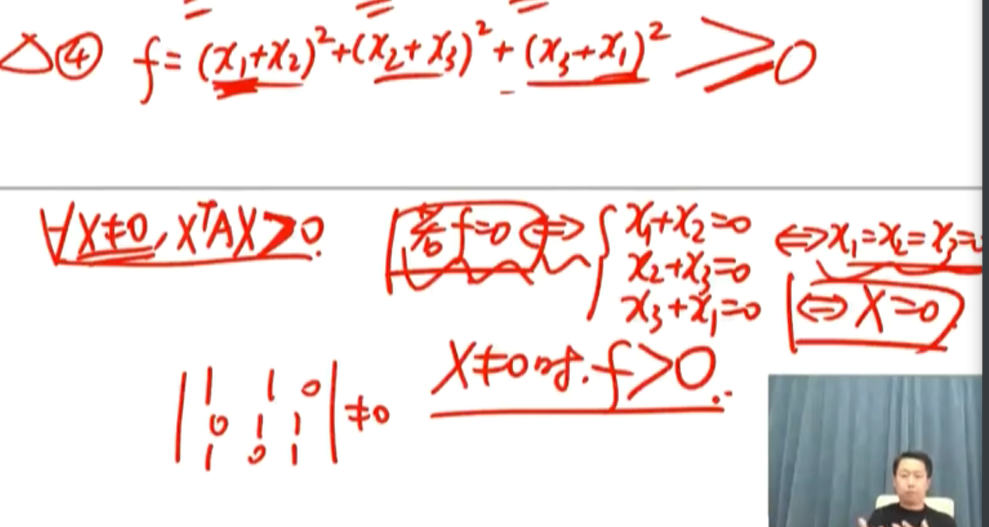 △④ f=(x₁+x₂)²+(x₂+x₃)²+(x₃+x₁)² ≥0
∀X≠0, XᵀAX>0.
若 f=0 ⇔ { x₁+x₂=0
x₂+x₃=0
x₃+x₁=0
⇔x₁=x₂=x₃=0
⇔ X=0
X≠0时. f>0.
| 1 1 0 |
| 0 1 1 | ≠0
| 1 0 1 |